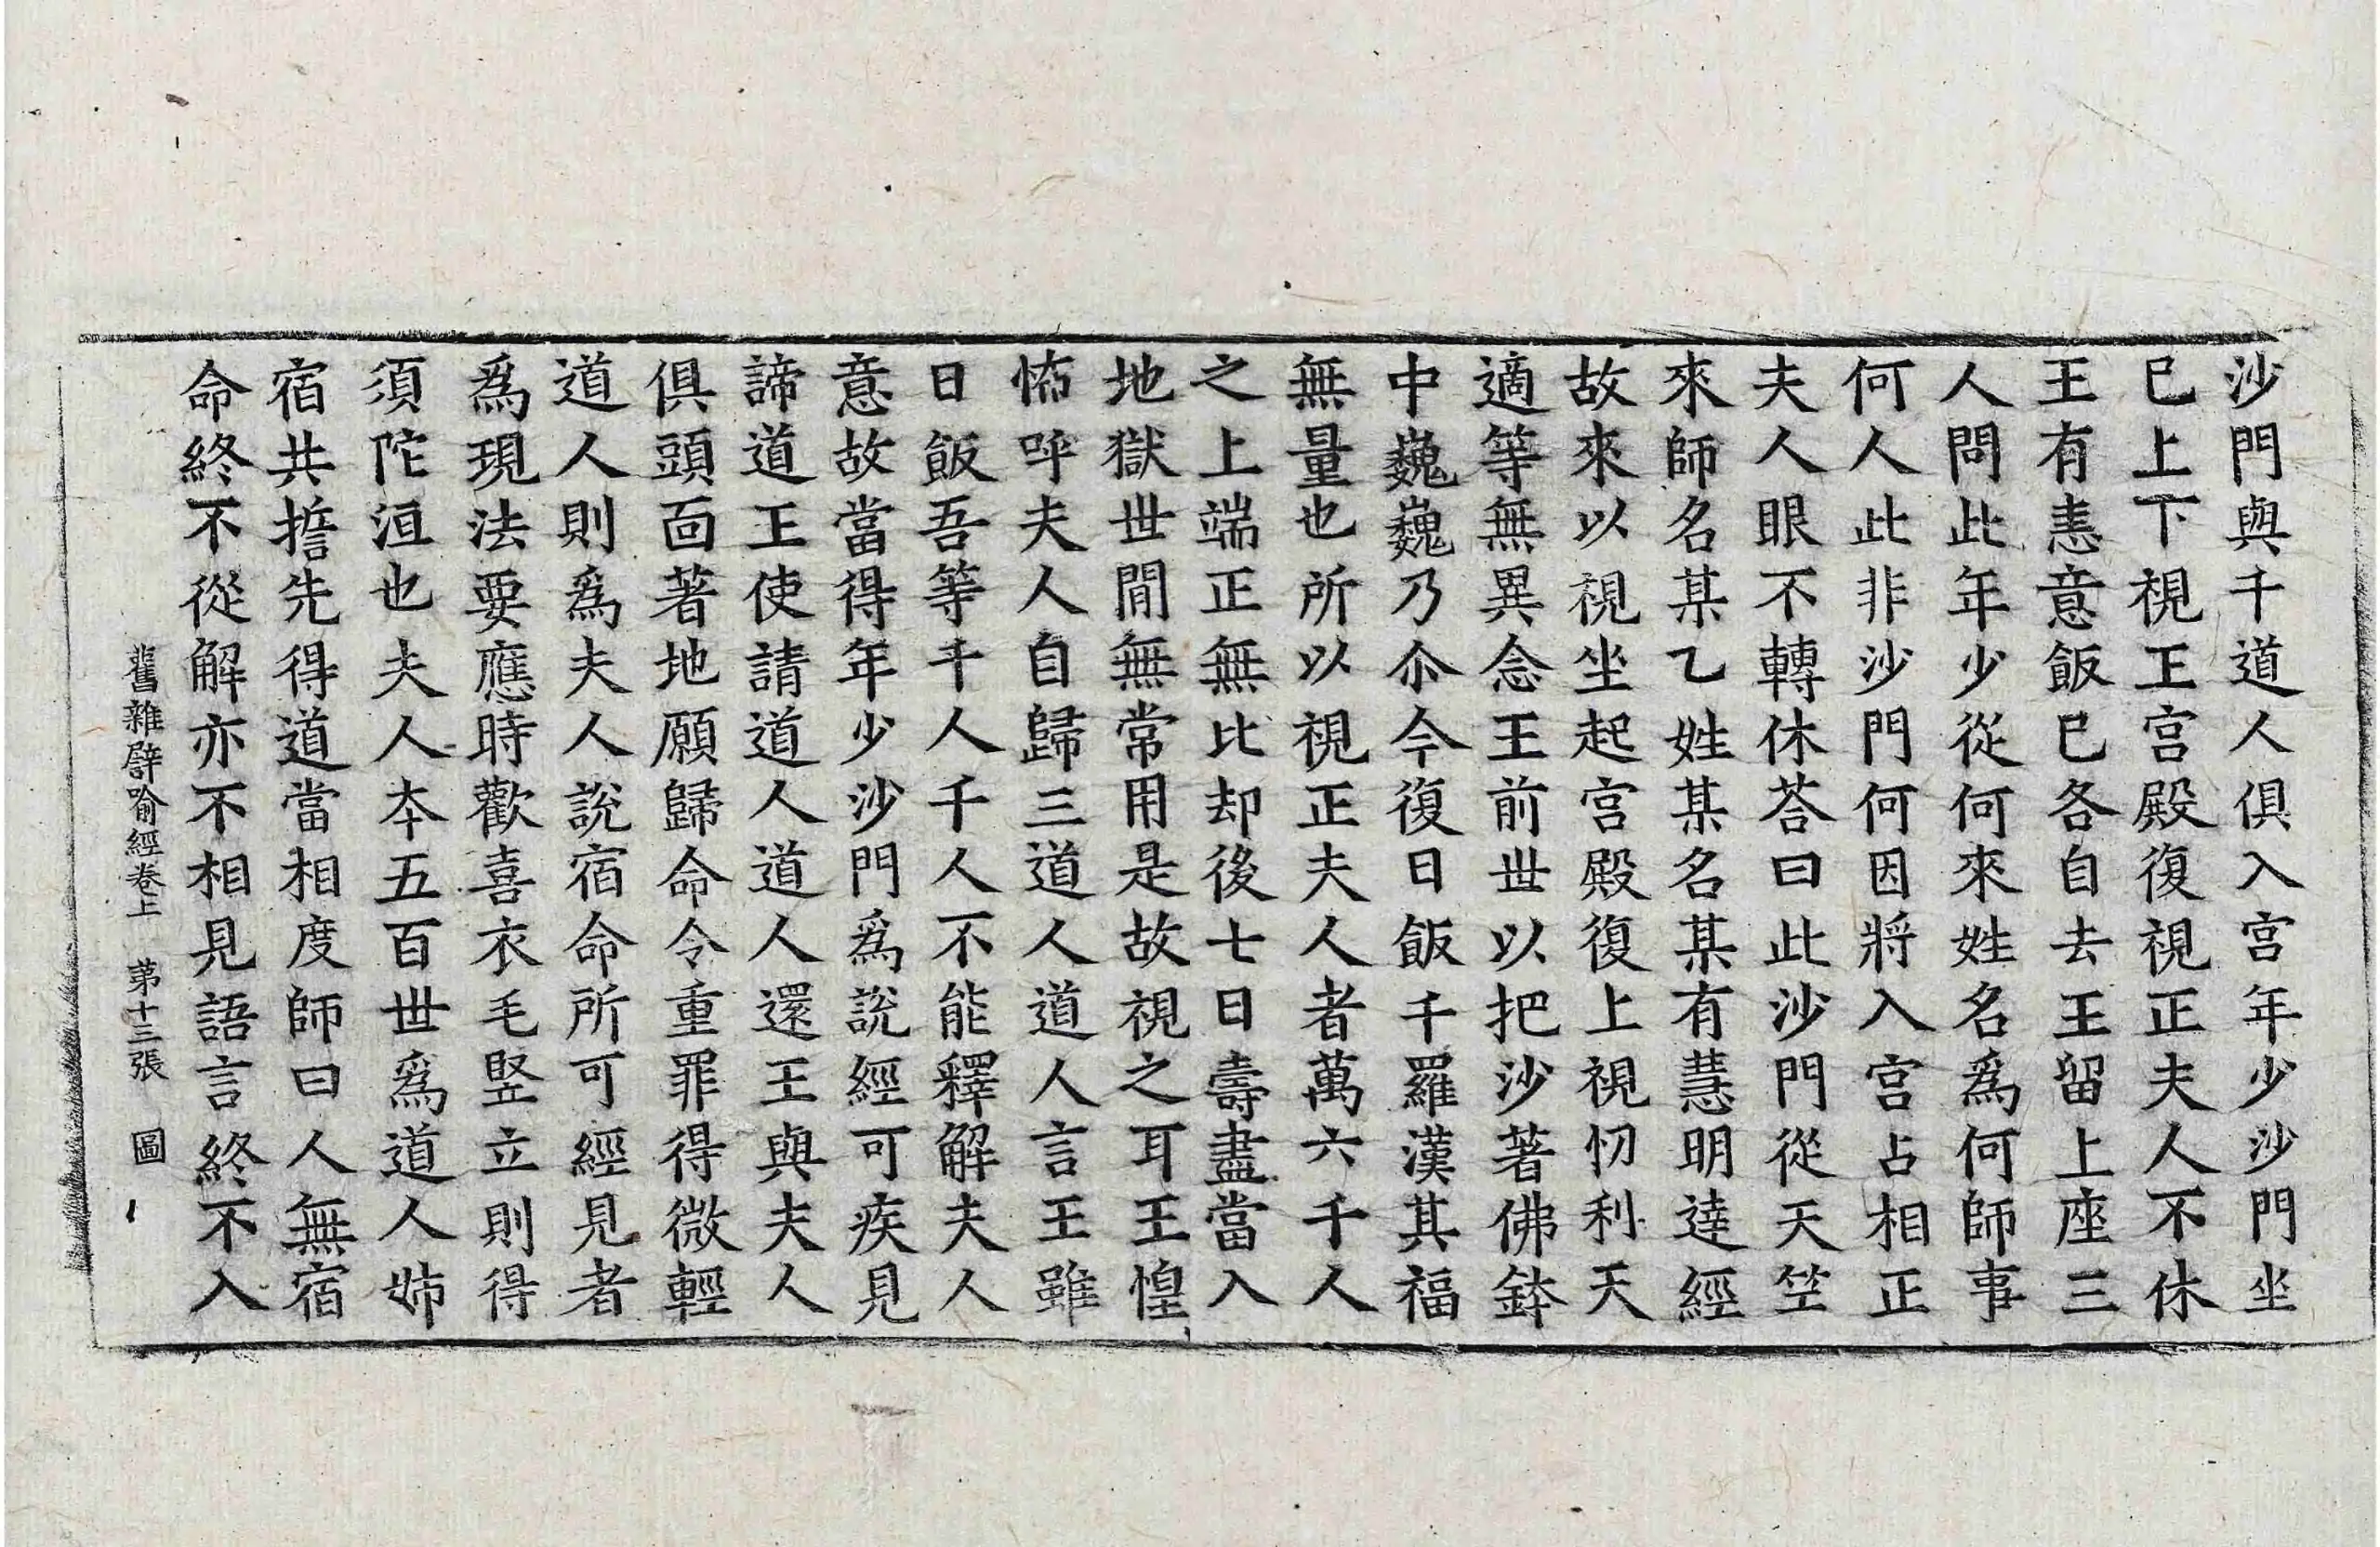 沙門與千道人俱入宮年少沙門坐
已上下視王宮殿復視正夫人不休
王有恚意飯已各自去王留上座三
人問此年少從何來姓名為何師事
何人此非沙門何因將入宮占相正
夫人眼不轉休荅曰此沙門從天笁
來師名某乙姓某名某有慧明達經
故來以視坐起宮殿復上視忉利天
適等無異念王前世以把沙著佛鉢
中巍巍乃尒今復日飯千羅漢其福
無量也所以視正夫人者萬六千人
之上端正無比却後七日壽盡當入
地獄世閒無常用是故視之耳王惶
怖呼夫人自歸三道人道人言王雖
日飯吾等千人千人不能釋解夫人
意故當得年少沙門為說經可疾見
諦道王使請道人道人還王與夫人
俱頭面著地願歸命令重罪得微輕
道人則為夫人說宿命所可經見者
為現法要應時歡喜衣毛竪立則得
須陀洹也夫人本五百世為道人姉
宿共擔先得道當相度師曰人無宿
命終不從解亦不相見語言終不入
舊雜譬喻經卷上　第十三張　圖